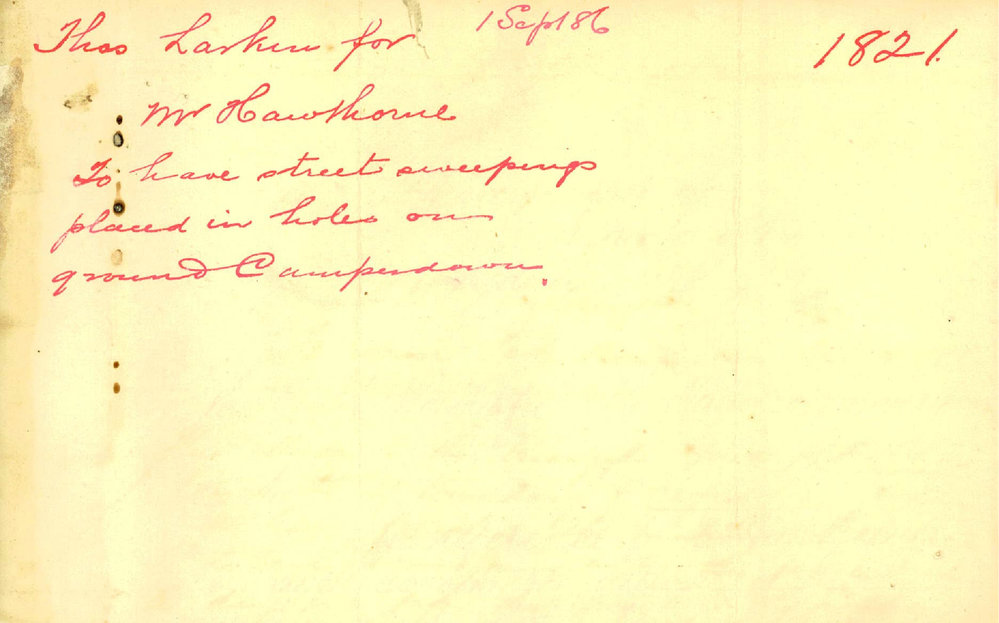 Thos Larkin for
1 Sept 86
1821.
Mr Hawthorne
To have street sweepings
placed in holes on
ground Camperdown.